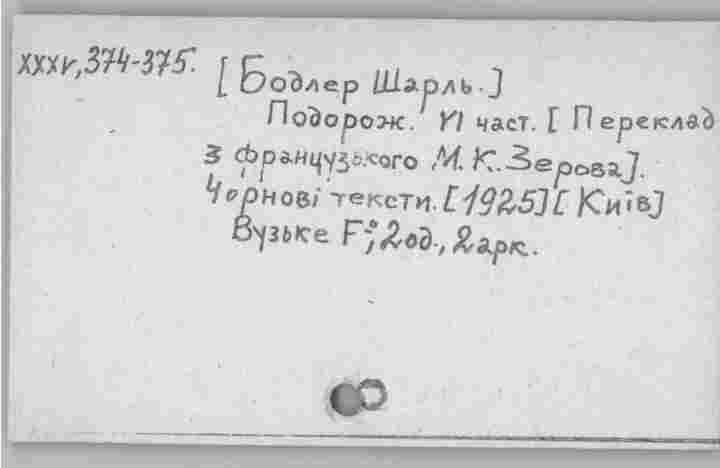 XXXV, 374-375. [Бодлер Шарль.]
Подорож. VI част. [Переклад
з французького М.К.Зерова].
Чорнові тексти. [1925] [Київ]
Вузьке F°; 2 од., 2 арк.